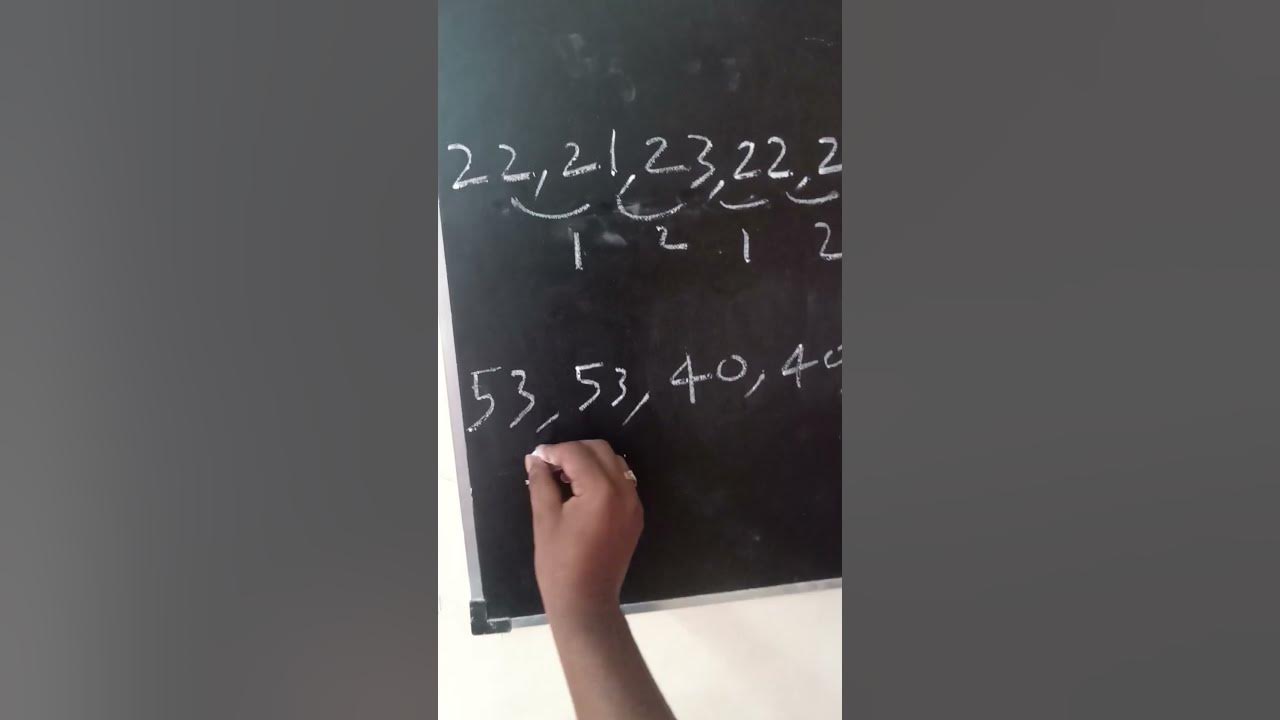 22, 21, 23, 22, 2
1 2 1 2
53, 53, 40, 40